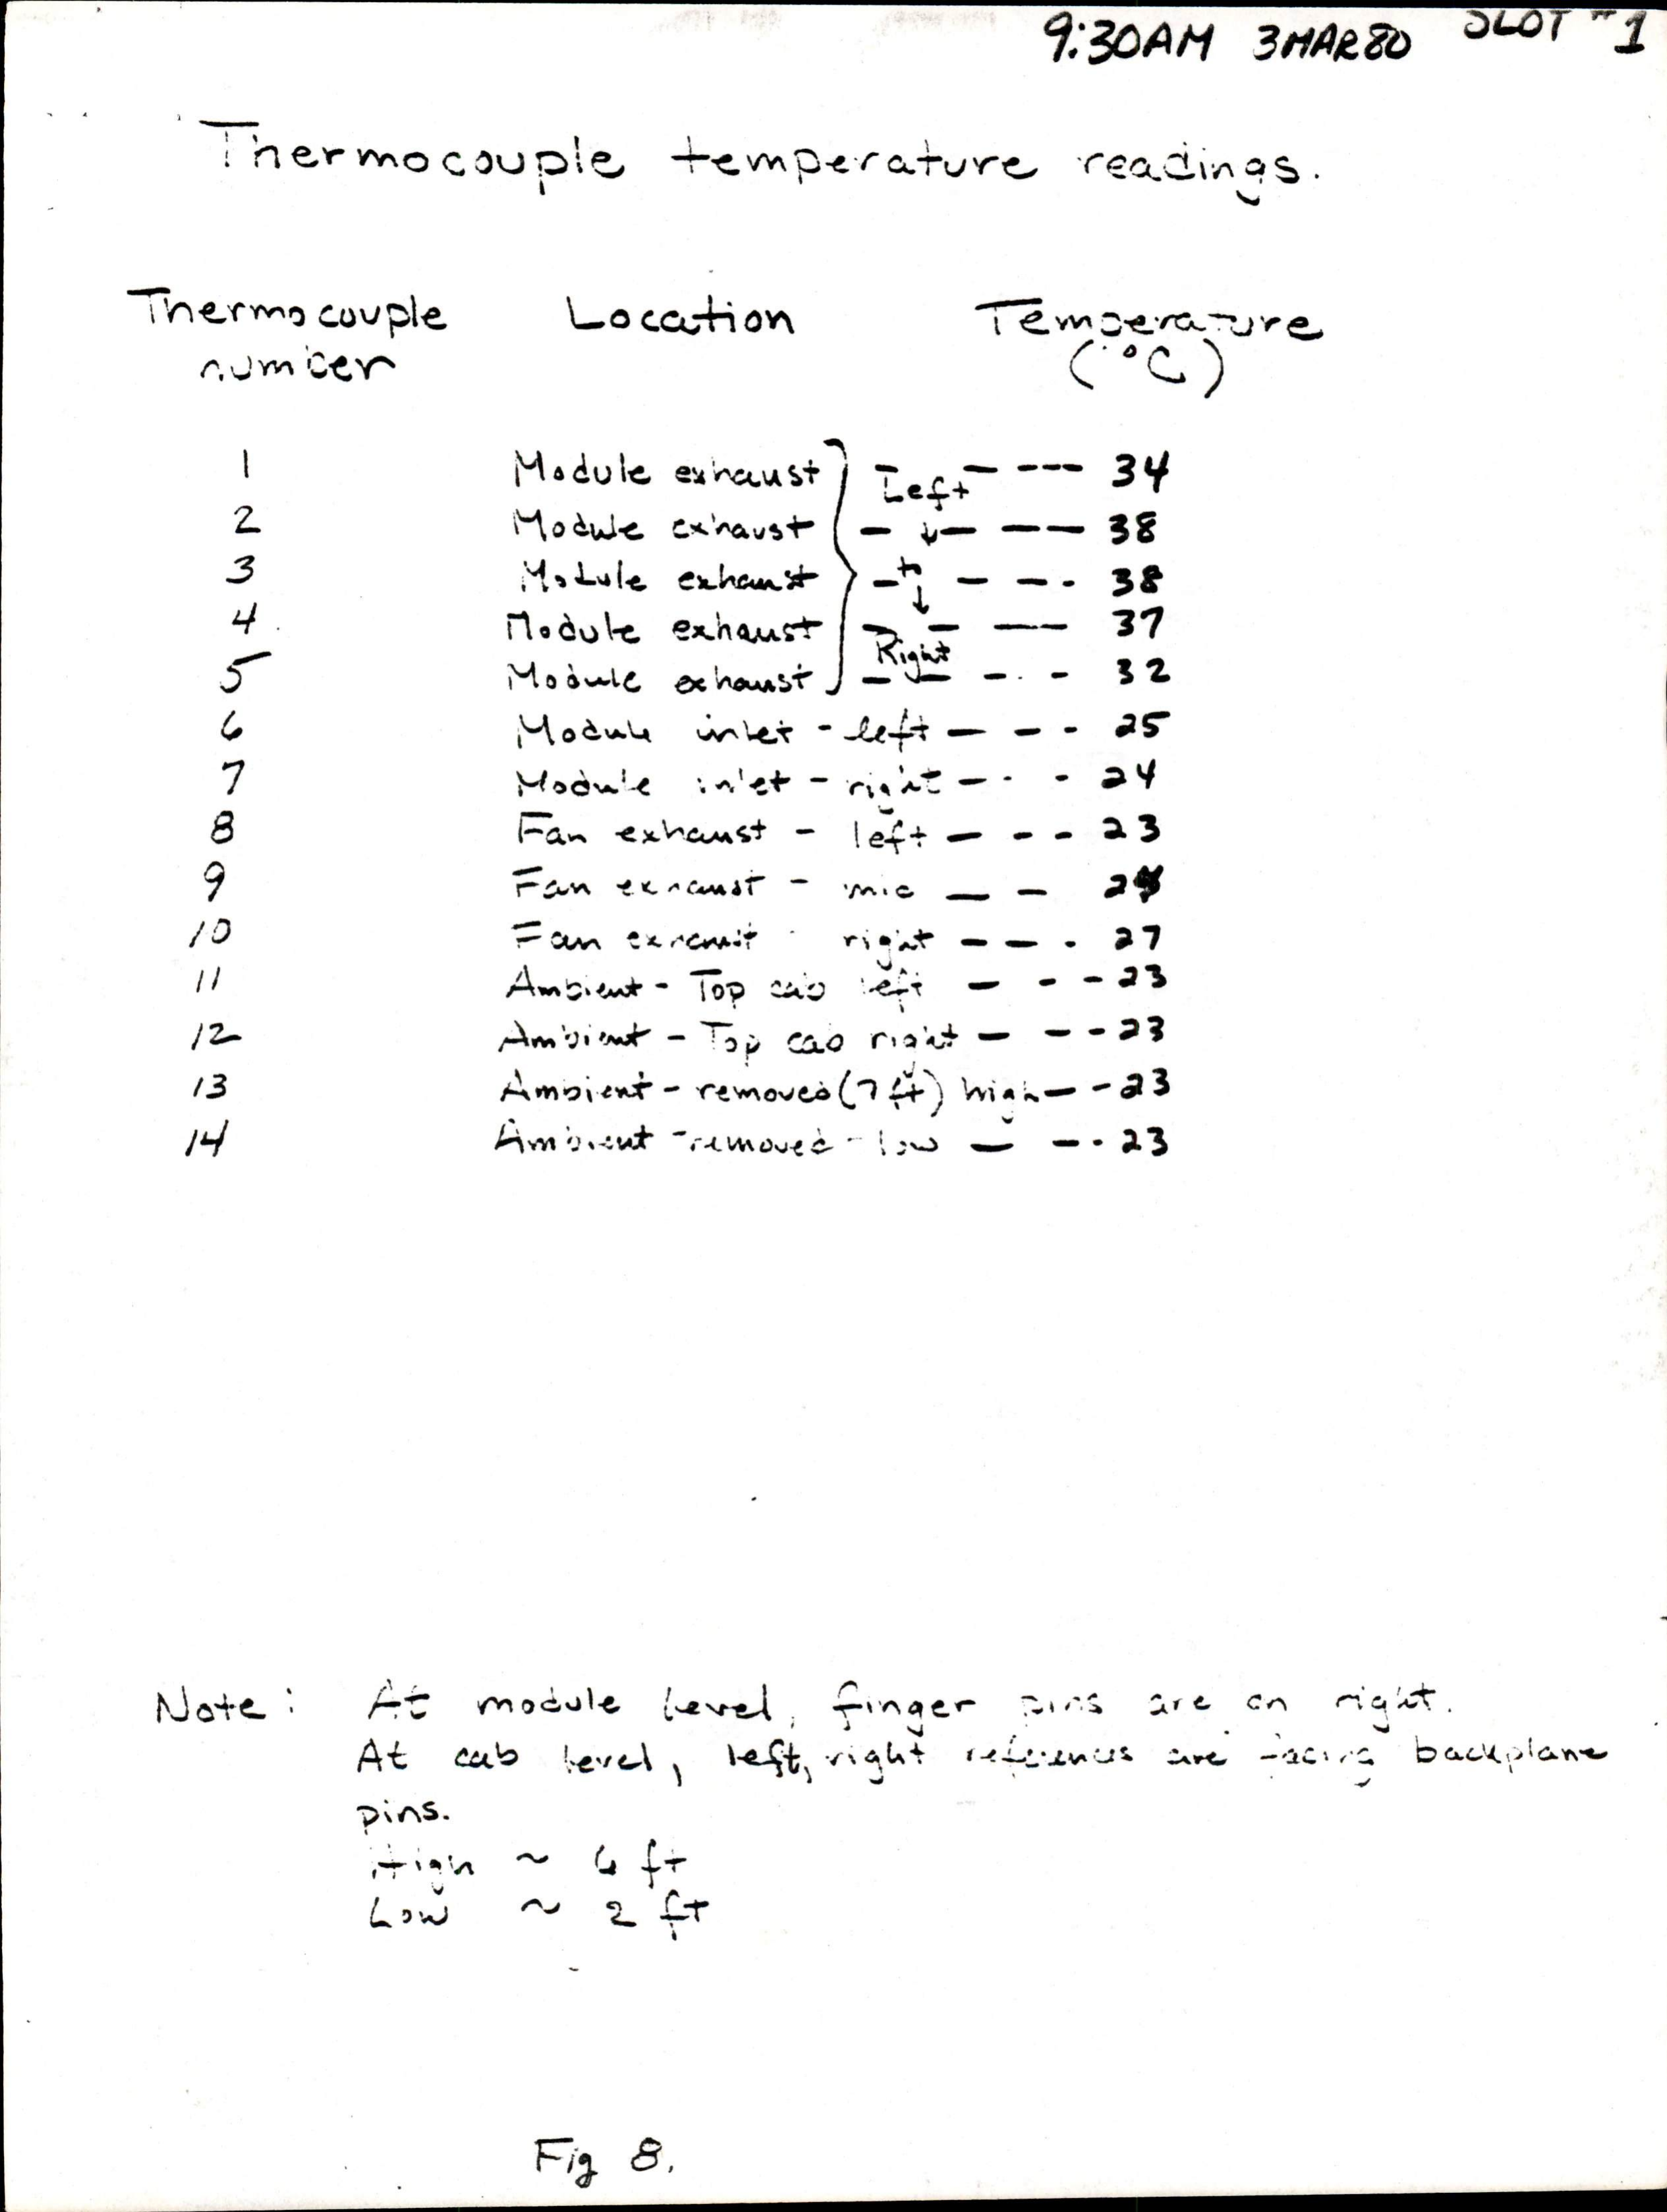 9:30AM 3MAR80 SLOT #1
Thermocouple temperature readings.
Thermocouple Location Temperature
number (°C)
1 Module exhaust - Left - --- 34
2 Module exhaust - ↓ - -- 38
3 Module exhaust - to - - - 38
↓
4 Module exhaust - - -- 37
Right
5 Module exhaust - - - - - 32
6 Module inlet - left - - - 25
7 Module inlet - right - - - 24
8 Fan exhaust - left - - - 23
9 Fan exhaust - mid - -
10 Fan exhaust - right - - - 27
11 Ambient - Top cab left - - - 23
12 Ambient - Top cab right - - - 23
13 Ambient - removed (7 ft) high - - 23
14 Ambient - removed - low - - - 23
Note: At module level, finger pins are on right.
At cab level, left, right references are facing backplane
pins.
High ~ 6 ft
Low ~ 2 ft
Fig 8.